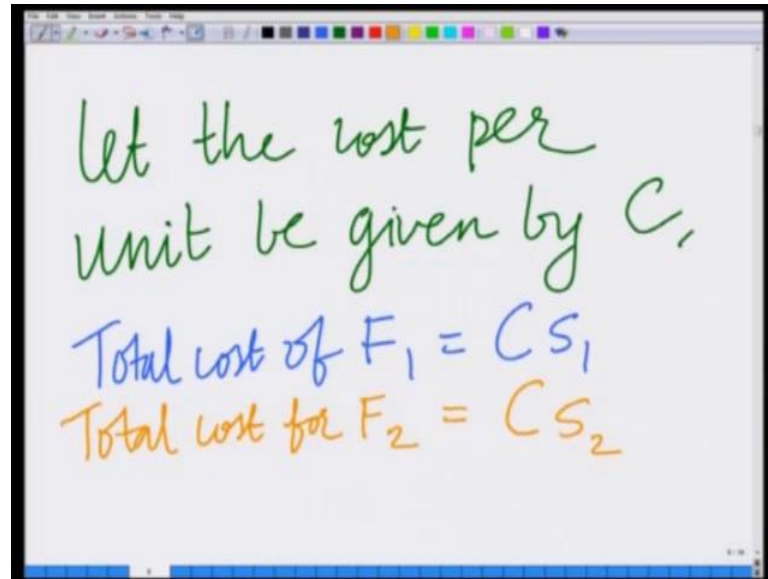 File Edit View Insert Actions Tools Help
let the cost per
unit be given by C,
Total cost of F₁ = C S₁
Total cost for F₂ = C S₂